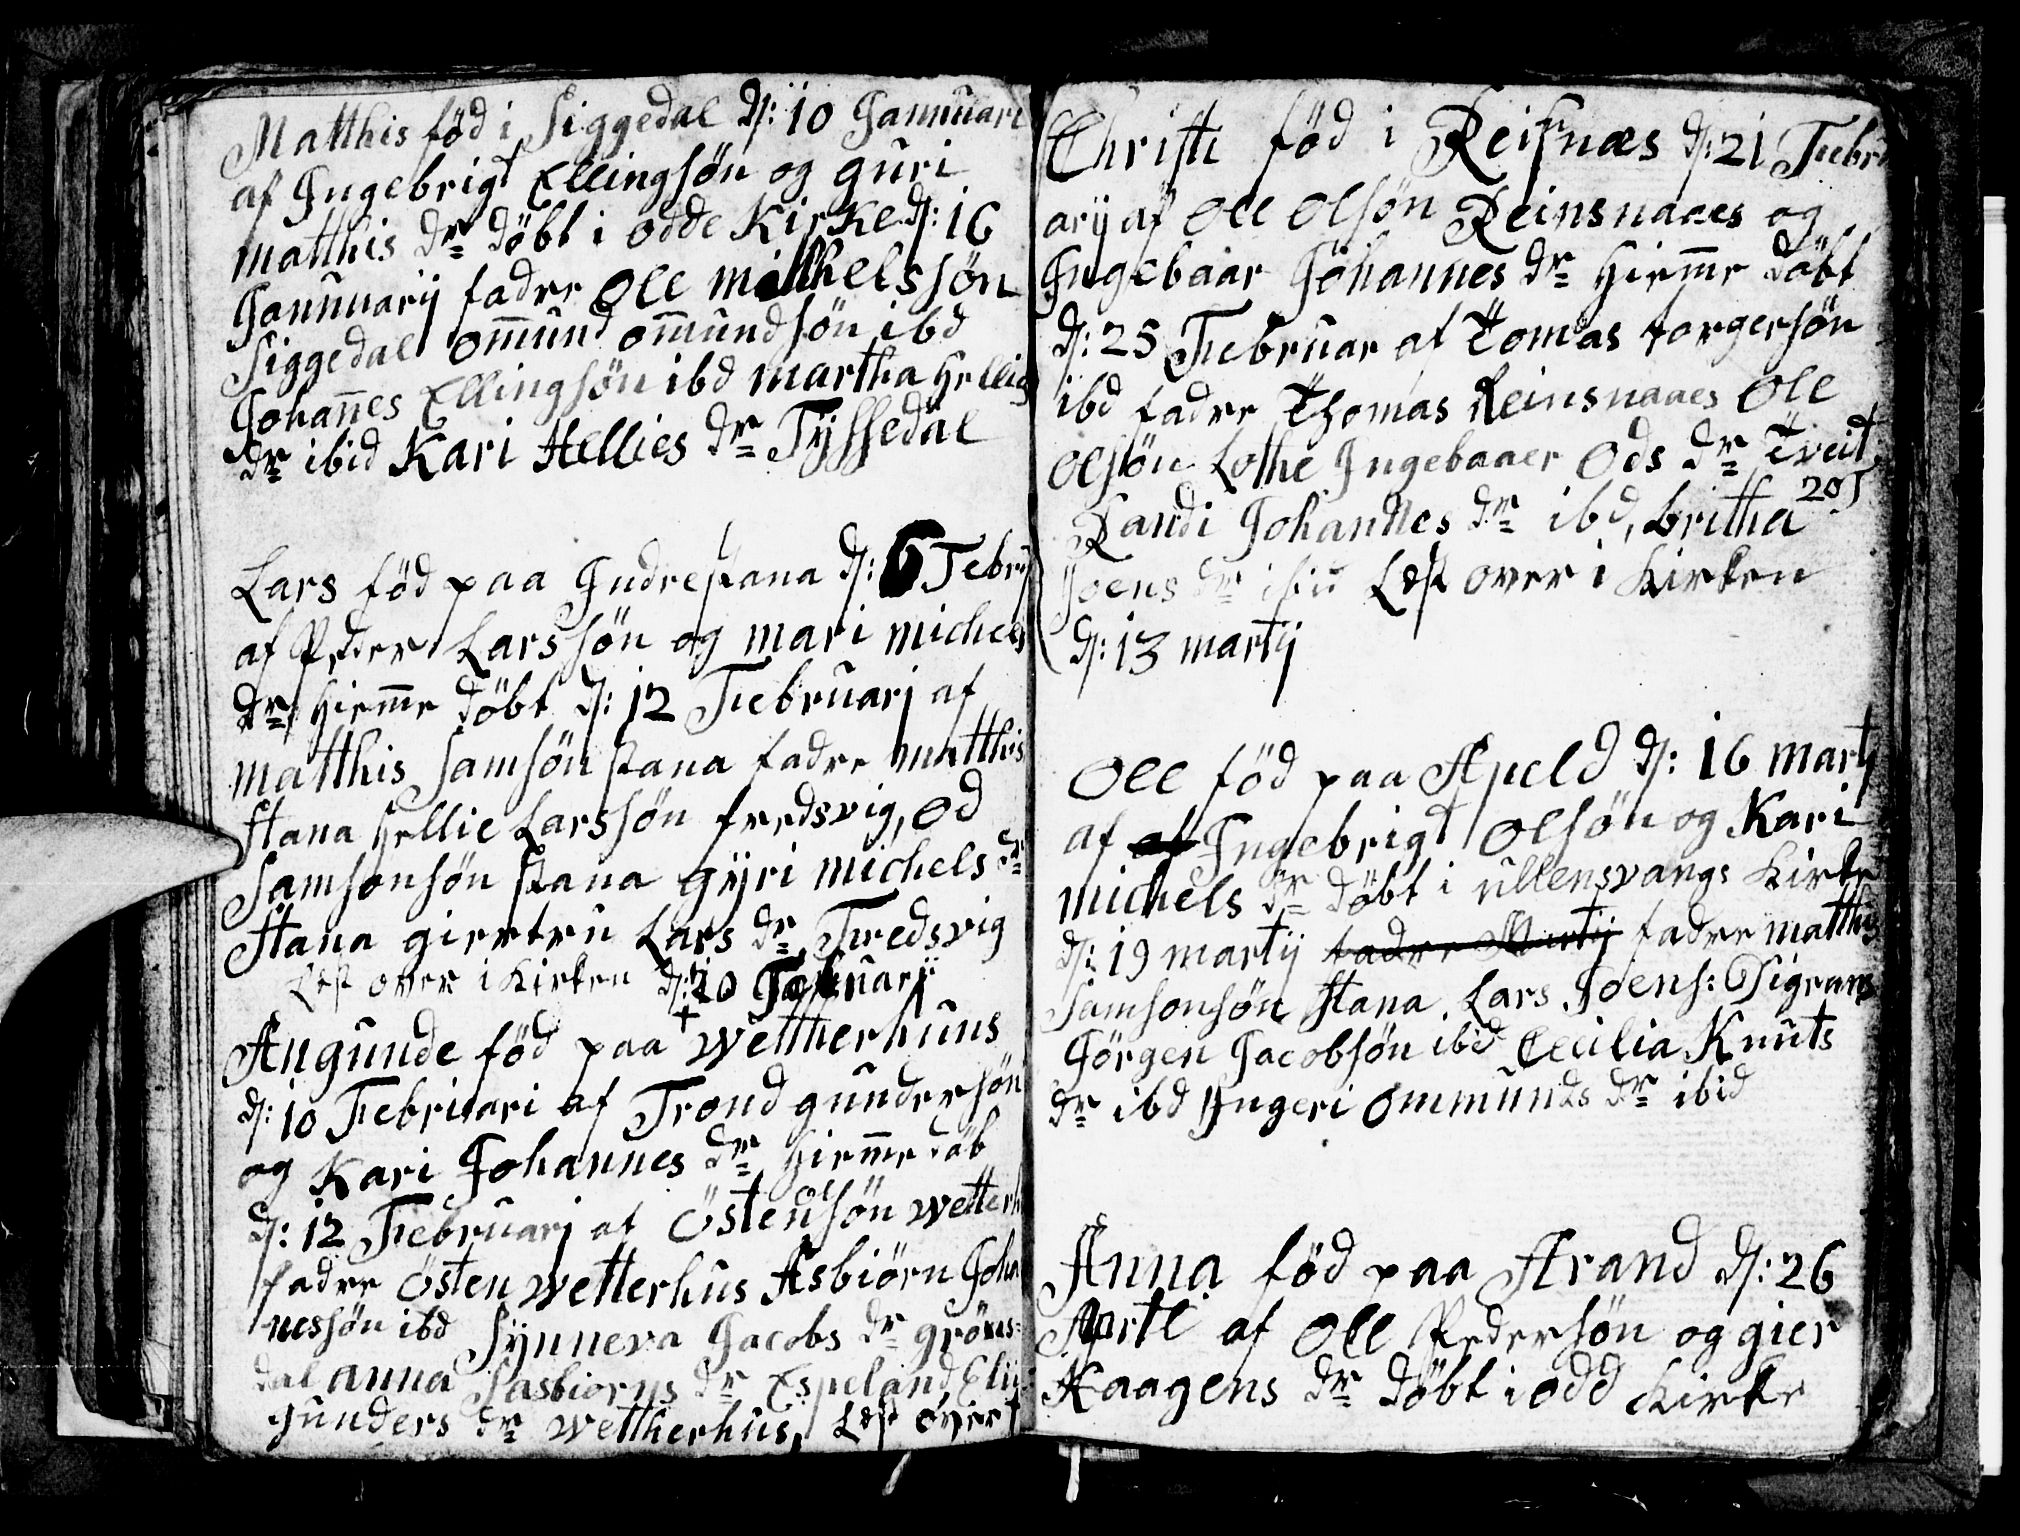 Matthis föd i Siggedal ds: 10 Jannuari
af Ingebrigt Ellingsön og guri
matthis dr döbt i odde Kirke ds: 16
Jannuarij fadre Ole Michelssön
Siggedal ommund ommundsön ibd
Johannes Ellingsön ibd martha Hellig
dr ibid Kari Hellies dr Tyssedal
Lars föd paa Indrestana ds: 6 Febrij
af Peder Larssön og mari michels
dr, hiemme döbt ds: 12 Februarj af
matthis Samsön stana fadre matthis
Stana Hellie Larssön fredsvig, Od
Samsonsön Stana gyri michels dr
Stana giertru Lars dr Fredsvig
Lest over i Kirken ds: 20
Angunde föd paa wettherhuns
ds: 10 Februari af Trond gundersön
og Kari Johannes dr hiemme döb
ds: 12 Februarj af Östensön wetterh
fadre östen wetterhus Asbiörn Joha
nessön ibd Synneva Jacobs dr gröns=
dal anna Sasbiorns dr Espeland Elii
gunders dr wettherhus, Lest over
Christi föd i Reisnæs ds: 21 Febru
arij af Ole Olsön Reinsnaaes og
Ingebaar Johannes dr hiemme döbt
ds: 25 Februar af Tomas torgersön
ibd fadre Thomas Reinsnaaes Ole
Olsön Lothe Ingebaaer Ods dr Tveit
Randi Johannes dr ibd, britha
Joens dr ibid Lest over i Kirken
ds: 13 martij
Ole föd paa Apeld ds: 16 martj
af af Ingebrigt Olsön og Kari
michels dr döbt i ullensvangs Kirke
ds: 19 martij fadre Martij fadre matthis
Samsonsön Stana, Lars Joens: Digranes
Jörgen Jacobsön ibid Cecilia Knuts
dr ibd Ingeri Ommunds dr ibid
Anna föd paa Strand ds: 26
Aprtl af Ole Pedersön og gier
Haagens dr döbt i odd Kirke